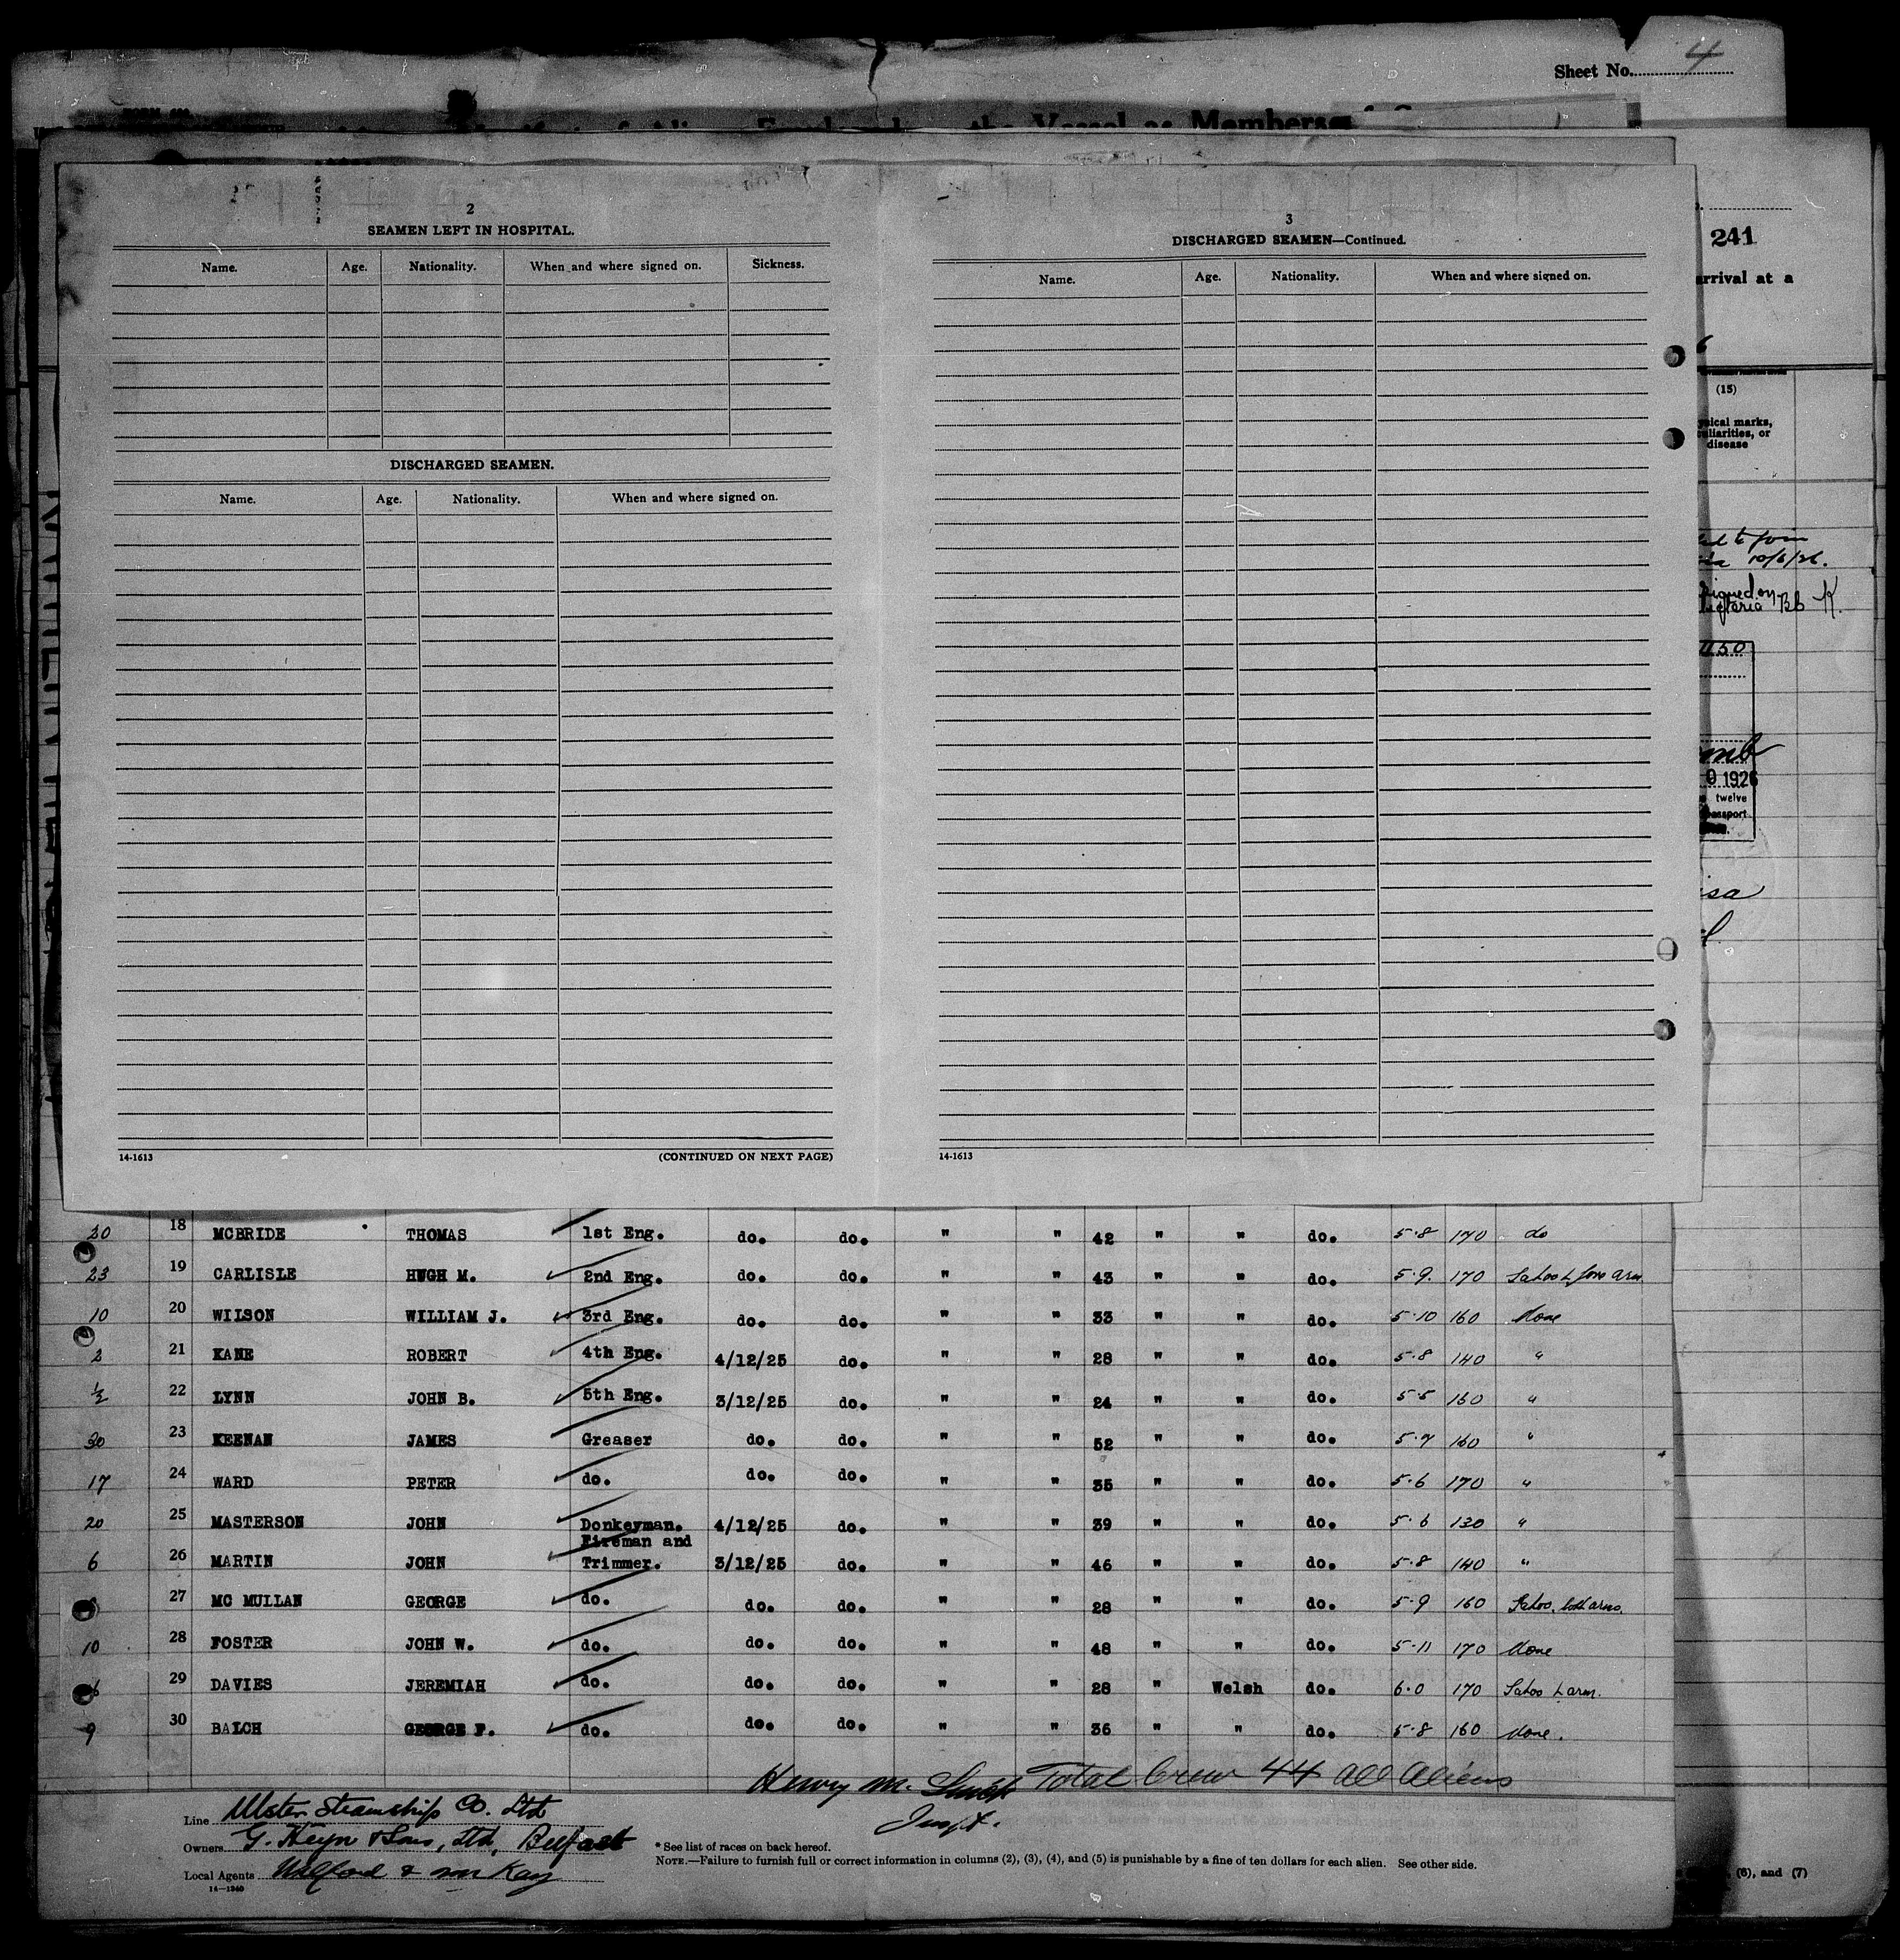 Sheet No. 4
the Vessel as Members
241
arrival at a
(15)
marks,
or
disease
to join
10/6/26.
Signed on
Victoria Bb K.
1926
twelve
passport
2
SEAMEN LEFT IN HOSPITAL.
Name. Age. Nationality. When and where signed on. Sickness.
DISCHARGED SEAMEN.
Name. Age. Nationality. When and where signed on.
14-1613 (CONTINUED ON NEXT PAGE)
3
DISCHARGED SEAMEN—Continued.
Name. Age. Nationality. When and where signed on.
14-1613
20 18 MCBRIDE THOMAS 1st Eng. do. do. " " 42 " " do. 5·8 170 do
23 19 CARLISLE HUGH M. 2nd Eng. do. do. " " 43 " " do. 5·9. 170 Tatoo L fore arm
10 20 WILSON WILLIAM J. 3rd Eng. do. do. " " 33 " " do. 5·10 160 None
2 21 KANE ROBERT 4th Eng. 4/12/25 do. " " 28 " " do. 5·8 140 "
½ 22 LYNN JOHN B. 5th Eng. 3/12/25 do. " " 24 " " do. 5·5 160 "
30 23 KEENAN JAMES Greaser do. do. " " 52 " " do. 5·7 160 "
17 24 WARD PETER do. do. do. " " 35 " " do. 5·6 170 "
20 25 MASTERSON JOHN Donkeyman. 4/12/25 do. " " 39 " " do. 5·6 130 "
Fireman and
6 26 MARTIN JOHN Trimmer. 3/12/25 do. " " 46 " " do. 5·8 140 "
27 MC MULLAN GEORGE do. do. do. " " 28 " " do. 5·9 160 Tatoo, both arms.
10 28 FOSTER JOHN W. do. do. do. " " 48 " " do. 5·11 170 None
29 DAVIES JEREMIAH do. do. do. " " 28 " Welsh do. 6·0 170 Tatoo L arm.
9 30 BALCH GEORGE F. do. do. do. " " 36 " " do. 5·8 160 None.
Henry M. Total Crew 44 all Aliens
Inspt.
Line Ulster Steamship Co. Ltd
Owners G. Heyn & Sons, Ltd, Belfast
Local Agents &
14—1240
* See list of races on back hereof.
NOTE.—Failure to furnish full or correct information in columns (2), (3), (4), and (5) is punishable by a fine of ten dollars for each alien. See other side.
(6), and (7)